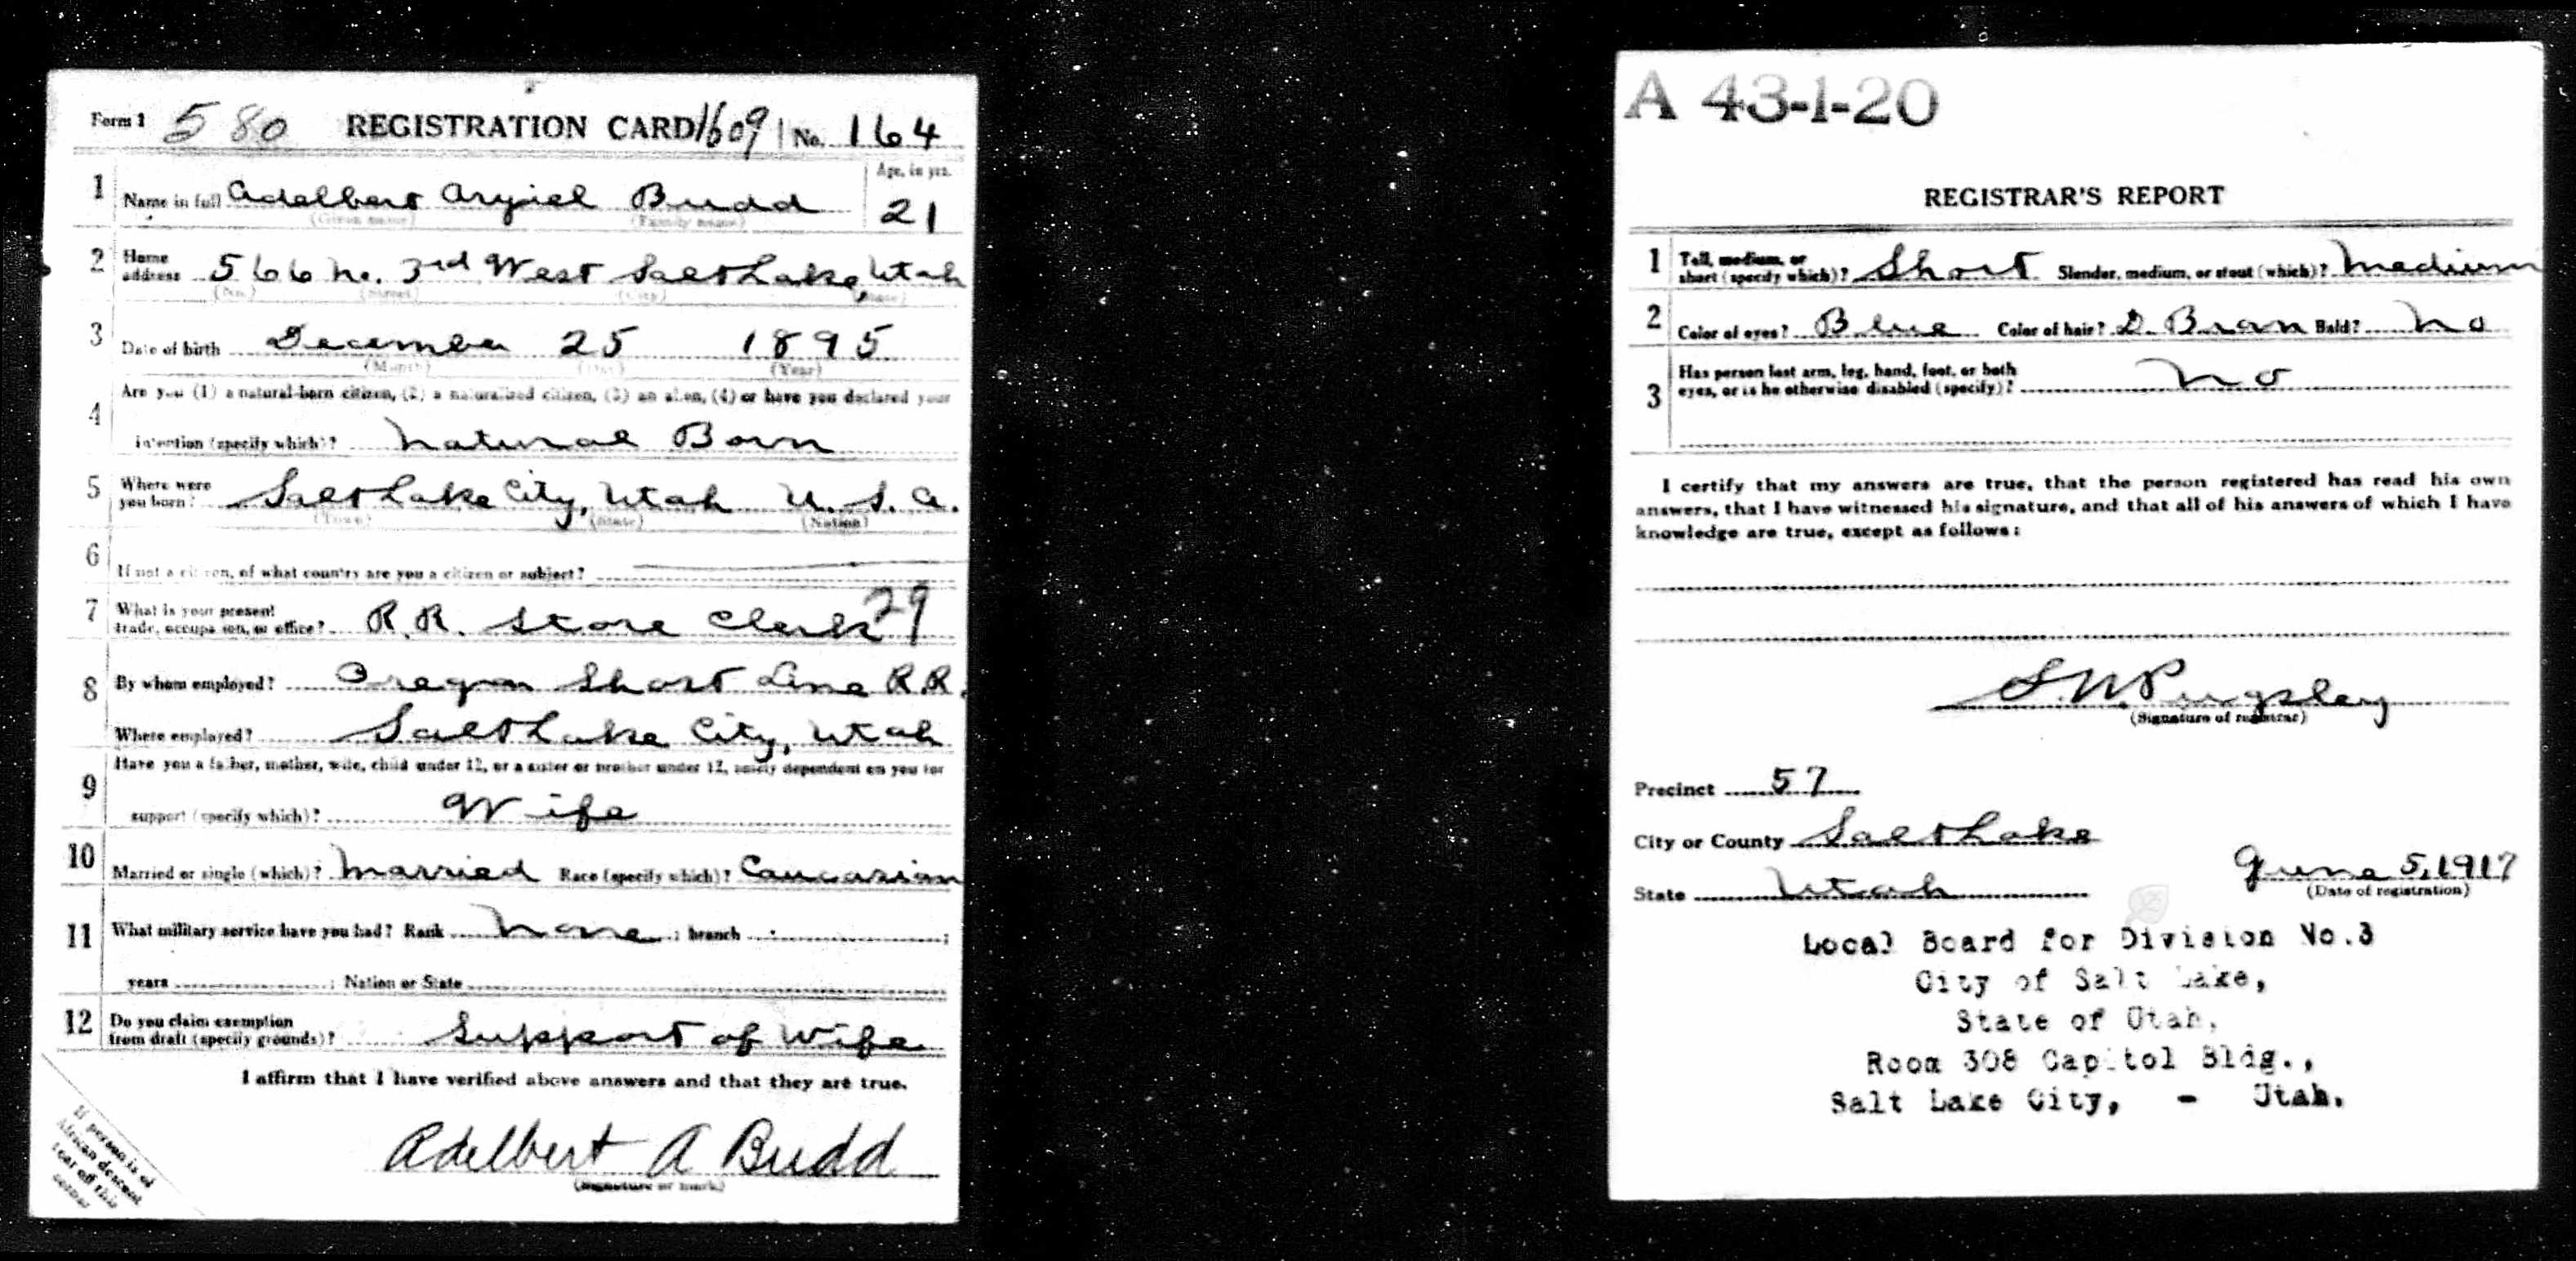 Form 1 580 REGISTRATION CARD 1609 No. 164
Age, in yrs.
1 Name in full Adelbert Budd 21
(Given name) (Family name)
2 Home address 566 No. 3rd West Salt Lake, Utah
(No.) (Street) (City) (State)
3 Date of birth December 25 1895
(Month) (Day) (Year)
Are you (1) a natural-born citizen, (2) a naturalized citizen, (3) an alien, (4) or have you declared your
4 intention (specify which)? Natural Born
5 Where were you born? Salt Lake City, Utah U. S. A.
(Town) (State) (Nation)
6 If not a citizen, of what country are you a citizen or subject?
7 What is your present trade, occupation, or office? R.R. Store Clerk 29
8 By whom employed? Oregon Short Line R.R.
Where employed? Salt Lake City, Utah
Have you a father, mother, wife, child under 12, or a sister or brother under 12, solely dependent on you for
9 support (specify which)? Wife
10 Married or single (which)? Married Race (specify which)? Caucasian
11 What military service have you had? Rank None ; branch ;
years ; Nation or State
12 Do you claim exemption from draft (specify grounds)? Support of Wife
I affirm that I have verified above answers and that they are true.
Adelbert A Budd
(Signature or mark)
If person is of
African descent
tear off this
corner
A 43-1-20
REGISTRAR'S REPORT
1 Tall, medium, or short (specify which)? Short Slender, medium, or stout (which)? Medium
2 Color of eyes? Blue Color of hair? D. Bran Bald? No
Has person lost arm, leg, hand, foot, or both
3 eyes, or is he otherwise disabled (specify)? No
I certify that my answers are true, that the person registered has read his own
answers, that I have witnessed his signature, and that all of his answers of which I have
knowledge are true, except as follows:
S.W. Pugsley
(Signature of registrar)
Precinct 57
City or County Salt Lake
State Utah June 5, 1917
(Date of registration)
Local Board for Division No.3
City of Salt Lake,
State of Utah,
Room 308 Capitol Bldg.,
Salt Lake City, - Utah.